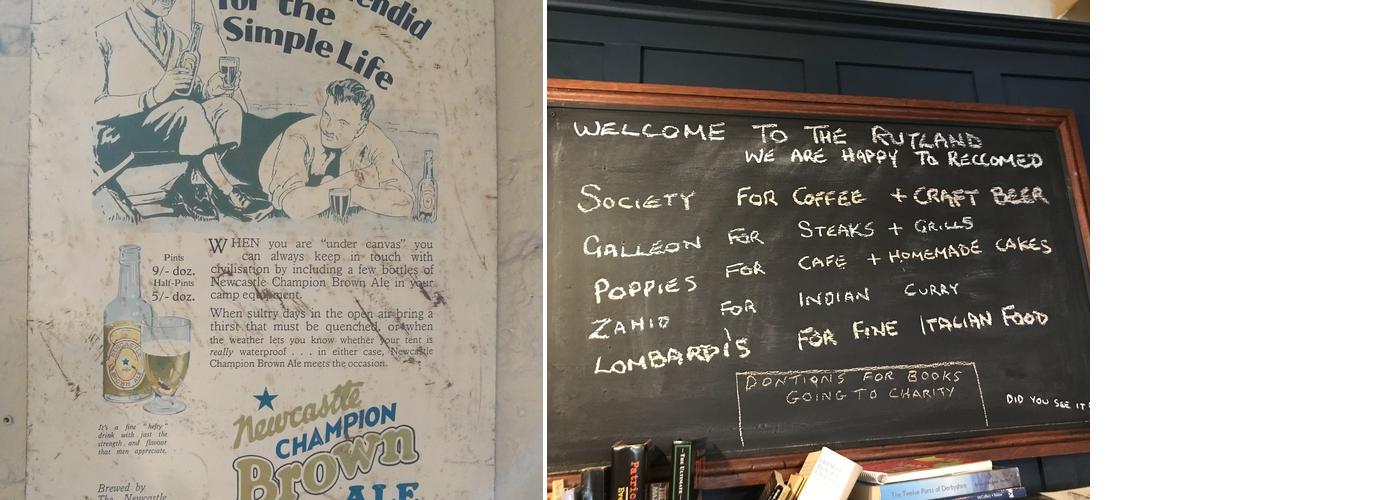 for the
Simple Life
WHEN you are "under canvas" you
can always keep in touch with
civilisation by including a few bottles of
Newcastle Champion Brown Ale in your
camp equipment.
When sultry days in the open air bring a
thirst that must be quenched, or when
the weather lets you know whether your tent is
really waterproof . . . in either case, Newcastle
Champion Brown Ale meets the occasion.
Pints
9/- doz.
Half-Pints
5/- doz.
It's a fine "hefty"
drink with just the
strength and flavour
that men appreciate.
Newcastle
CHAMPION
Brown
ALE
Brewed by
The Newcastle
WELCOME TO THE RUTLAND
WE ARE HAPPY TO RECCOMED
SOCIETY FOR COFFEE + CRAFT BEER
GALLEON FOR STEAKS + GRILLS
POPPIES FOR CAFE + HOMEMADE CAKES
ZAHID FOR INDIAN CURRY
LOMBARDI'S FOR FINE ITALIAN FOOD
DONTIONS FOR BOOKS
GOING TO CHARITY
DID YOU SEE IT
THE ULTIMATE
The Twelve Parts of Derbyshire